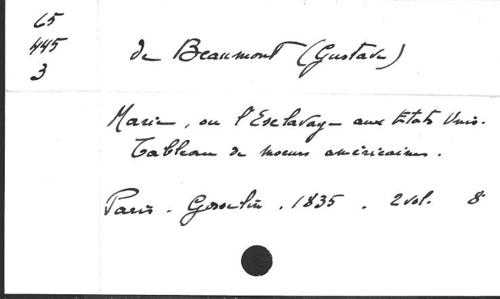 65
445
3
de Beaumont (Gustave)
Marie, ou l'Esclavage aux Etats Unis.
Tableau de moeurs américaines.
Paris. Gosselin. 1835. 2 vol. 8°